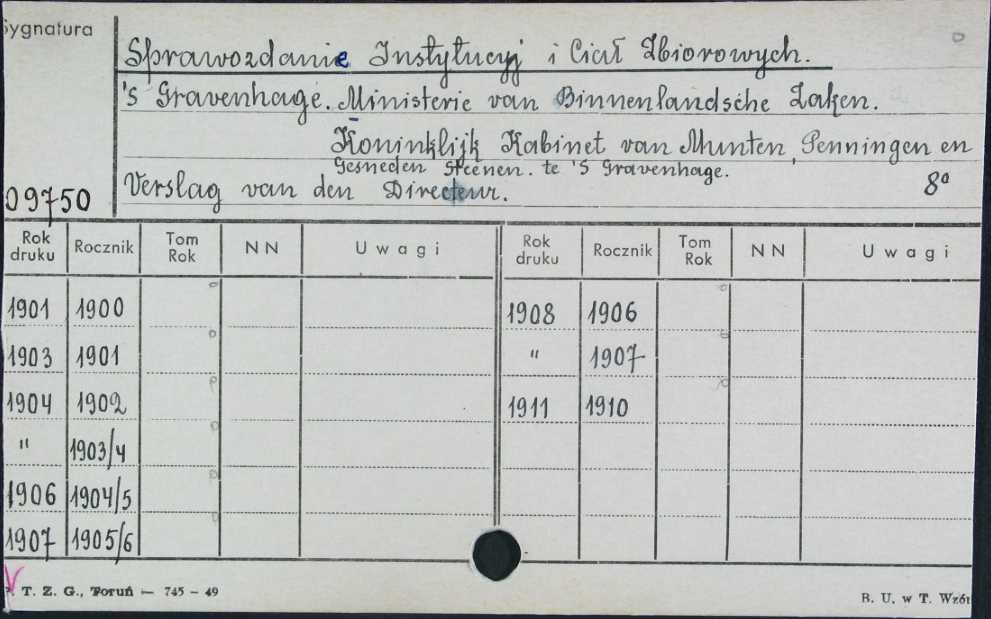 Sygnatura
Sprawozdanie Instytucyj i Ciał Zbiorowych.
'S Gravenhage. Ministerie van Binnenlandsche Zaken.
Koninklijk Kabinet van Munten, Penningen en
Gesneden Steenen. te 'S Gravenhage.
Verslag van den Directeur. 8°
09750
Rok druku Rocznik Tom Rok NN Uwagi Rok druku Rocznik Tom Rok NN Uwagi
1901 1900 1908 1906
1903 1901 " 1907
1904 1902 1911 1910
" 1903/4
1906 1904/5
1907 1905/6
T. Z. G., Toruń — 745 - 49
B. U. w T. Wzór